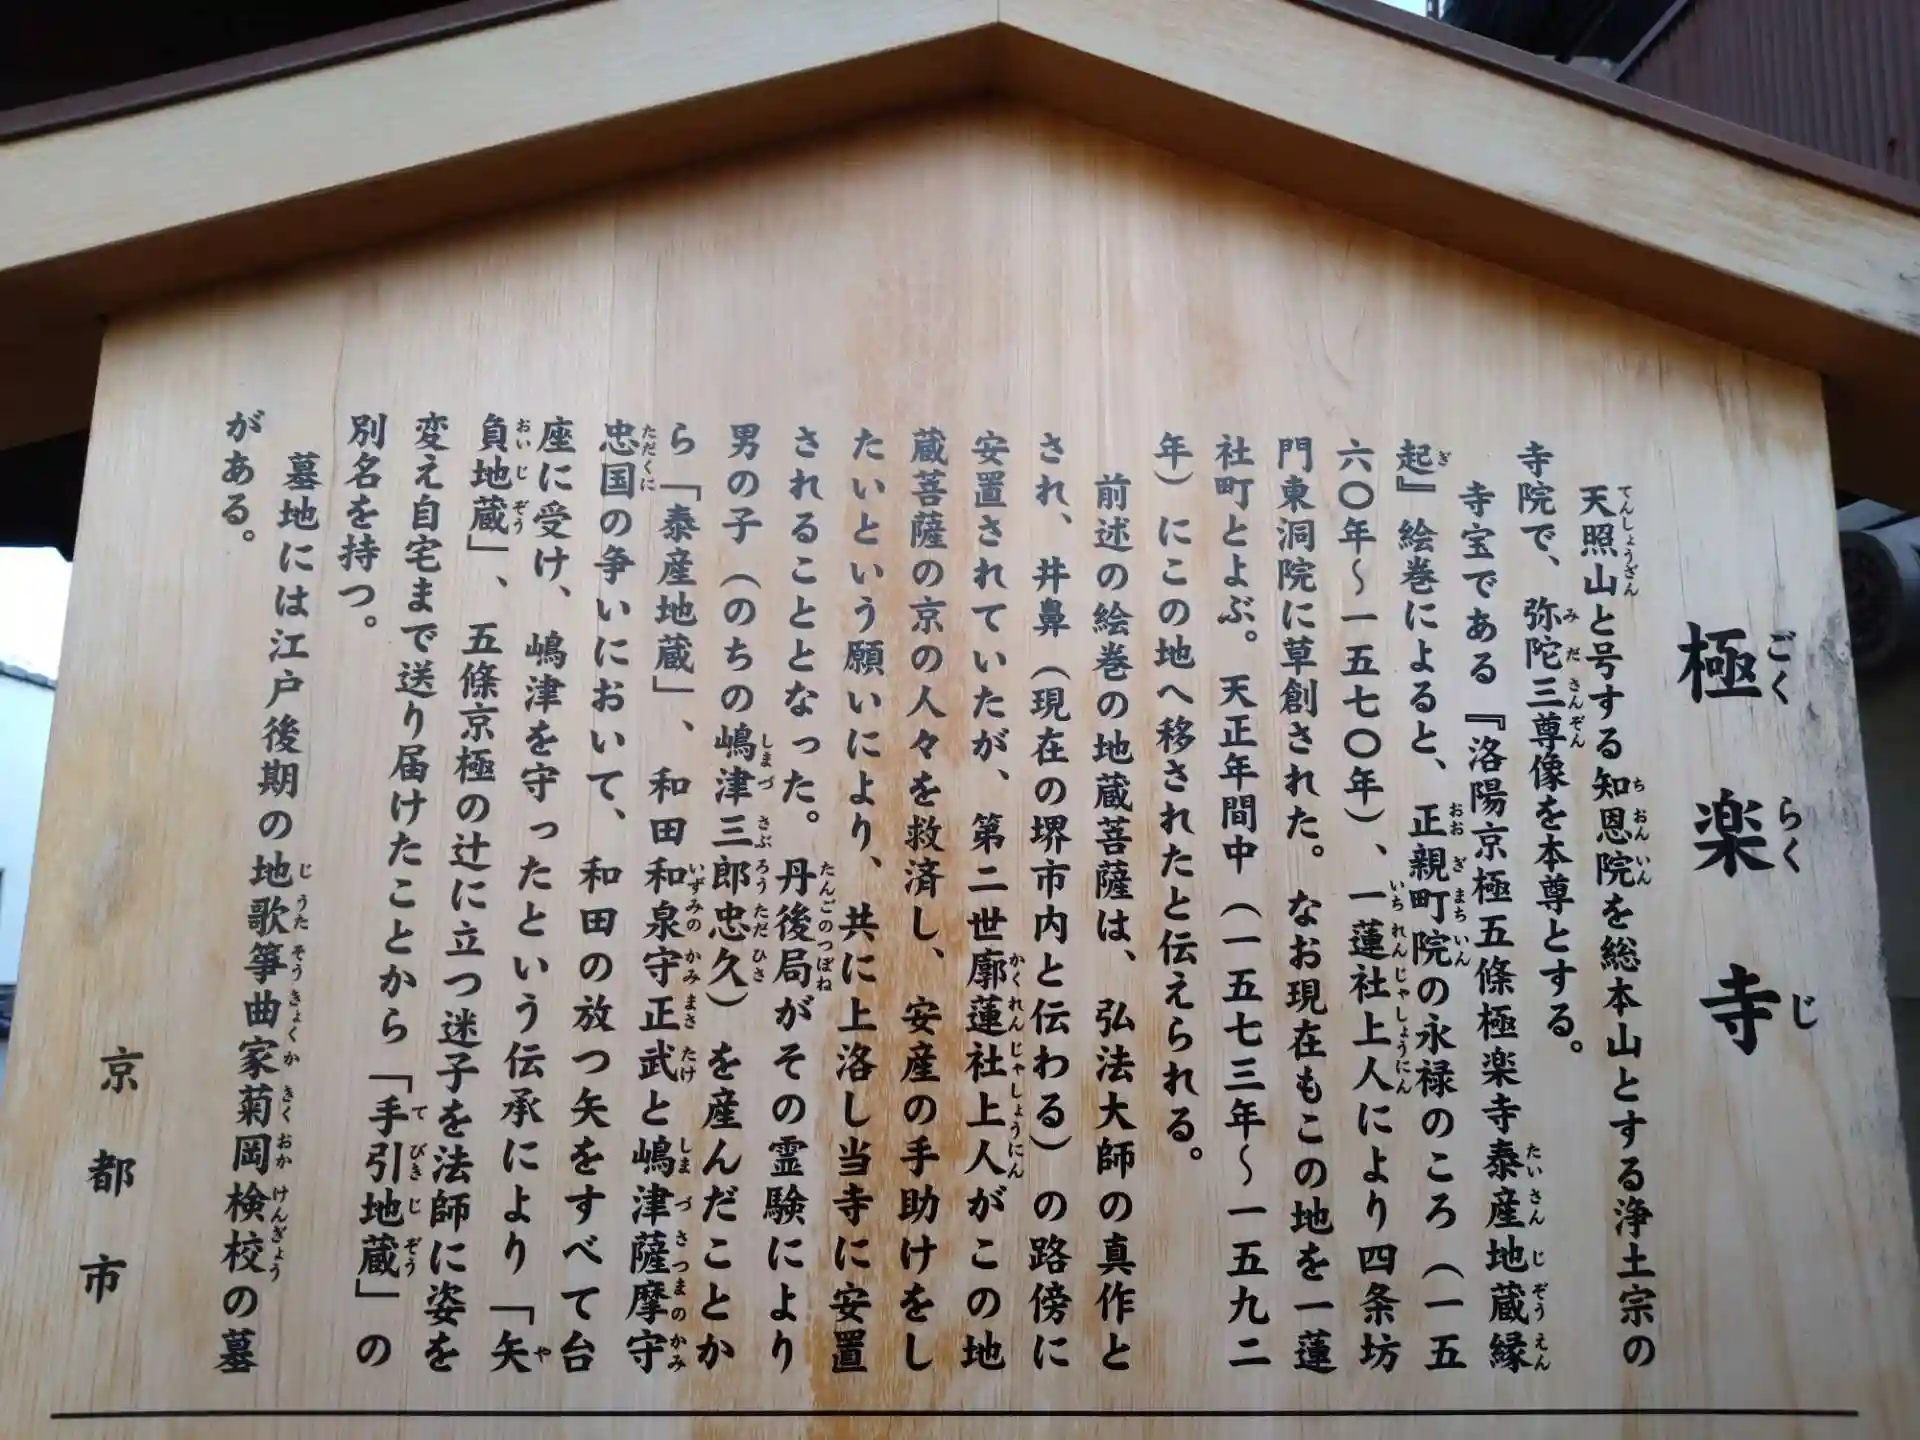 極楽寺
天照山と号する知恩院を総本山とする浄土宗の
寺院で、弥陀三尊像を本尊とする。
寺宝である『洛陽京極五條極楽寺泰産地蔵縁
起』絵巻によると、正親町院の永禄のころ（一五
六〇年〜一五七〇年）、一蓮社上人により四条坊
門東洞院に草創された。なお現在もこの地を一蓮
社町とよぶ。天正年間中（一五七三年〜一五九二
年）にこの地へ移されたと伝えられる。
前述の絵巻の地蔵菩薩は、弘法大師の真作と
され、井鼻（現在の堺市内と伝わる）の路傍に
安置されていたが、第二世廓蓮社上人がこの地
蔵菩薩の京の人々を救済し、安産の手助けをし
たいという願いにより、共に上洛し当寺に安置
されることとなった。丹後局がその霊験により
男の子（のちの嶋津三郎忠久）を産んだことか
ら「泰産地蔵」、和田和泉守正武と嶋津薩摩守
忠国の争いにおいて、和田の放つ矢をすべて台
座に受け、嶋津を守ったという伝承により「矢
負地蔵」、五條京極の辻に立つ迷子を法師に姿を
変え自宅まで送り届けたことから「手引地蔵」の
別名を持つ。
墓地には江戸後期の地歌箏曲家菊岡検校の墓
がある。
京都市